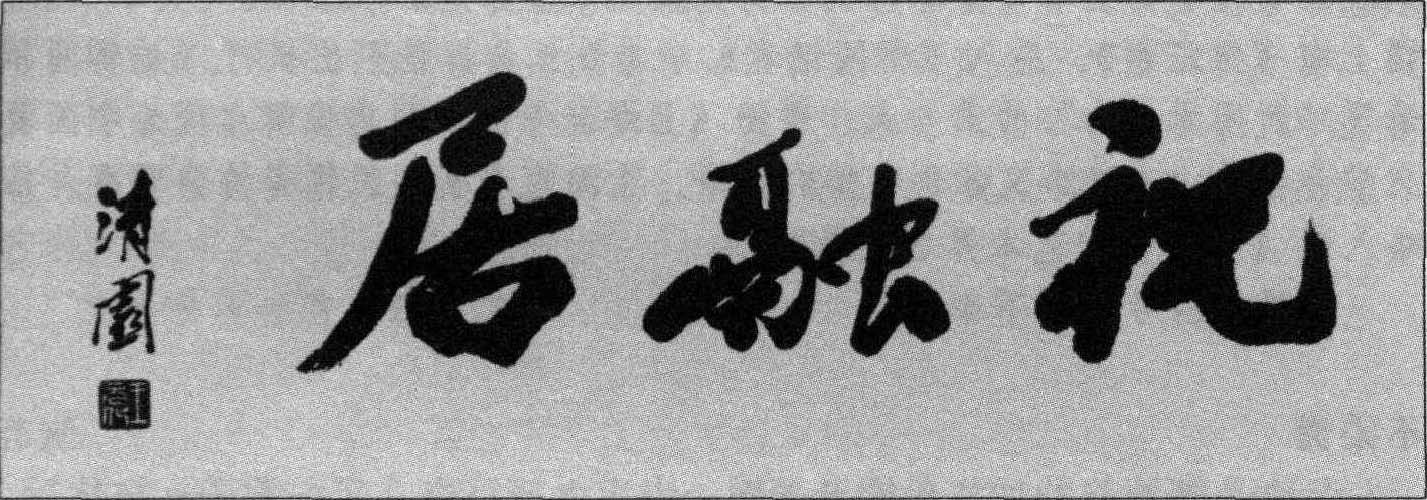 祝融居
清園